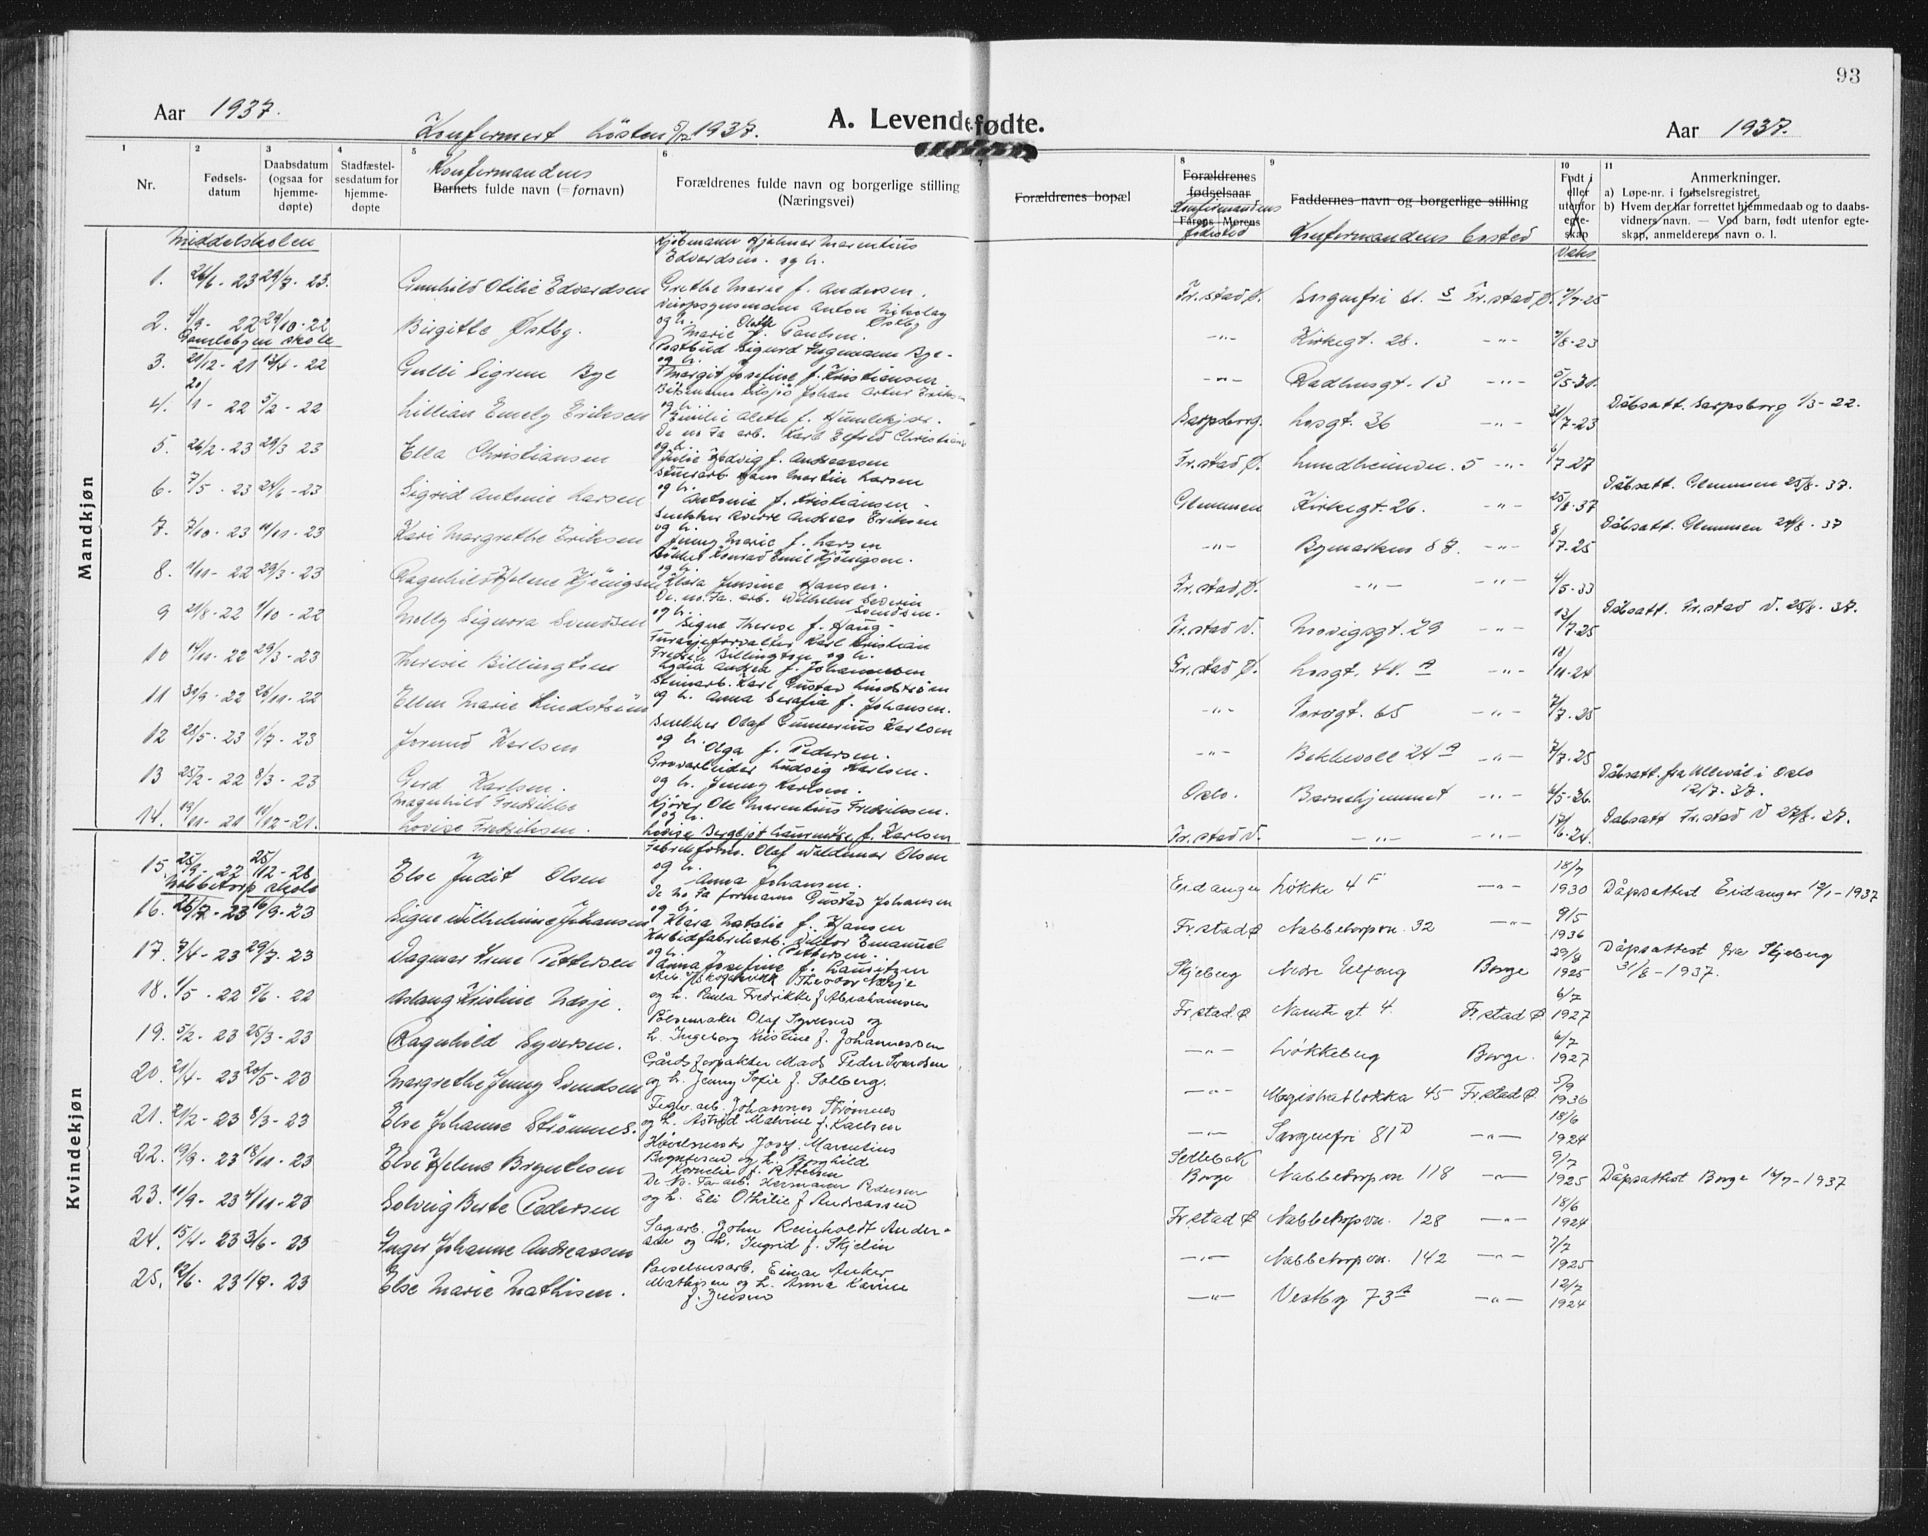 93
Aar 1937.
Konfermert høsten 5/12 1937.
A. Levendefødte.
Aar 1937.
1 2 3 4 5 6 7 8 9 10 11
Nr.
Fødsels-
datum
Daabsdatum
(ogsaa for
hjemme-
døpte)
Stadfæstel-
sesdatum for
hjemme-
døpte
Konfermandens
Barnets fulde navn (= fornavn)
Forældrenes fulde navn og borgerlige stilling
(Næringsvei)
Forældrenes bopæl
Forældrenes
fødselsaar
Konfirmandens
Farens Morens
fødested
Faddernes navn og borgerlige stilling
Konfermandens bosted
Født i
eller
utenfor
egte-
skap
Vaks
Anmerkninger.
a) Løpe-nr. i fødselsregistret.
b) Hvem der har forrettet hjemmedaab og to daabs-
vidners navn. — Ved barn, født utenfor egte-
skap, anmelderens navn o. l.
Mandkjøn
Middelskolen
Kjøbmann Hjalmar Marentius
Edvardsen. og h.
1. 26/6 - 23 29/7 - 23. Gunhild Otilie Edvardsen Grethe Marie f. Andersen. Fr.stad Ø. Sorgenfri 61. S Fr.stad, Ø. 7/7-25
Anton Nikolay
2. 4/9 - 22 29/10-22 Birgitte Østby. og h. Marie Olette f. Paulsen. Østby -"- Kirkegt. 28. -"- 7/8-23
Gamlebyen skole
Postbud Sigurd Ingemann Bye-
og h.
3. 21/12 - 21 13/4 - 22 Gulli Sigrun Bye Margit Josefine f. Kristiansen -"- Raadhusgt. 13 -"- 5/5-31.
Johan Artur Eriks-
4. 20/1 - 22 5/2 - 22 Lillian Emely Eriksen og h. Emilie Alette f. Humlekjær. Sarpsborg. Losgt. 26 -"- 31/7-23 Dåbsatt. Sarpsborg 1/3-22.
De no. Fa. arb. Karl Elfred Christians
5. 26/2 - 23 29/3 23 Ella Christiansen og h. Julie Hedvig f. Andreassen Fr.stad, Ø. Lundheimvn. 5 -"- 6/7-27
Stenarb. Hans Martin Larsen
6. 7/5 - 23 24/6 - 23 Sigrid Antonie Larsen og h. Antonia f. Kristiansen - Glemmen Kirkegt. 26. -"- 25/8-37 Dåbsatt. Glemmen 25/8-37.
Snekker Sverre Andreas Eriksen
7. 7/10 - 23 11/11 - 23 Kari Margrethe Eriksen og h. Jenny Marie f. Larsen -"- Bymarken 87. -"- 8/7-25 Dåbsatt. Glemmen 24/8-37
Bøkker Konrad Emil Hjönigsen.
8. 1/11 - 22 29/3 - 23 Ragnhild Helene Hjönigsen og h. Klara Jensine Hansen. Fr.stad, Ø. -"- -"- 4/5-33
De. no. Fa. arb. Wilhelm Severin
Svendsen.
9 21/8 - 22 1/10 - 22 Molly Signora Svendsen og h. Signe Therese f. Haug- Fr.stad V. Movigsgt. 29 -"- 13/7-25 Dåbsatt. Fr.stad V. 25/8-37.
Furasjeforvalter Karl Kristian
10 14/11 - 22 29/3 - 23 Theresie Billingtsen Fredrik Billingtsen og h.
Lydia Andrea f. Johannesen Fr.stad Ø. Losgt. 41. A -"- 18/11-24
Stenarb. Karl Gustav Lindstrøm
11 30/9 - 22 26/11 - 22 Ellen Marie Lindstrøm og h. Anna Serafia f. Johansen. -"- Torvgt. 65 -"- 7/7-25
Snekker Olaf Gunnerius Karlsen
12 28/5 - 23 1/7 - 23 Jorund Karlsen og h. Olga f. Pedersen. -"- Bekkevoll 24 A -"- 7/7-25
Grovarbeider Ludvig Karlsen.
13 25/2 - 22 8/3 - 23 Gerd Karlsen. og h. Jenny Karlsen. Oslo. Barnehjemmet -"- 4/5-36. Dåbsatt. fra Ullevål i Oslo
12/7-37.
14. 19/11 - 21 11/12 - 21. Magnhild Fredrikke
Lovise Fredriksen. Kjører Ole Marentius Fredriksen.
og h.
Lovise Bergljot f. Karlsen Fr.stad V. -"- -"- 17/6-24. Dåbsatt Fr.stad V 27/8-37.
Kvindekjøn
15. 25/9 - 22 25/12 - 28 Else Judit Olsen Fabrikform. Olaf Waldemar Olsen
og h. Anna Johansen. Eidanger Løkke 4 F -"- 18/7 1930 Dåpsattest Eidanger 19/1-1937
Nabbetorp skole
De No Fa formann Gustav Johansen
16. 26/7 - 23 16/9 - 23 Signe Wilhelmine Johansen og h. Klara Natalie f. Hansen Fr.stad Ø Nabbetorpvn. 32 -"- 9/5 1936
Karbidfabrikarb. Viktor Emanuel
Pettersen.
17. 7/4 - 23 29/7 - 23 Dagmar Irene Pettersen og h. Anna Josefine f. Lauritzen Skjeberg Nedre Borge 29/8 1925 Dåpsattest fra Skjeberg
31/8-1937.
Theodor Næsje
18. 1/5 - 22 5/6 - 22 Aslaug Kristine Næsje. og h. Paula Fredrikke f Abrahamsen Fr.stad Ø gt. 4. Fr.stad Ø 6/7 1927
Pølsemaker Olaf Syversen og
19. 5/2 - 23 25/3 - 23 Ragnhild Syversen. h. Ingeborg Kristine f. Johannessen -"- Løkkeberg Borge. 6/7 1927
Gårdsforpakter Mads Peder Svendsen
20. 21/4 - 23 20/5 - 23 Margrethe Jenny Svendsen og h. Jenny Sofie f. Solberg. -"- Magistratløkka 45 Fr.stad Ø. 5/9 1936
Teglv. arb. Johannes Strömnes
21. 21/2 - 23 8/3 - 23 Else Johanne Strömnes. og h. Astrid Malvine f. Karlsen -"- Sorgenfri 81 D -"- 18/6 1924
Høvelmester Josef Marentius
22. 19/9 - 23 18/11 - 23 Else Helene Bryntesen Bryntesen og h. Borghild
Kornelie f. Pettersen Sellebakk
Borge Nabbetorpvn 118 -"- 9/7 1925 Dåpsattest Borge 16/7-1937
De No. Fa. arb. Hermann Pedersen
23. 11/9 - 23 4/11 - 23 Solveig Berte Pedersen og h. Eli Othilie f Andreassen Fr.stad Ø Nabbetorpvn. 128 -"- 18/6 1924
Sagarb. John Reinholdt Andre-
24. 15/4 - 23 3/6 - 23 Inger Johanne Andreassen sen og h. Ingrid f. Skjelin -"- Nabbetorpvn. 142 -"- 7/7 1925
Porselensarb. Einar Anker
25. 12/6 - 23 1/9 - 23 Else Marie Mathisen. Mathisen og h. Anna Karine
f. Jensen -"- Vestby 73 A -"- 12/7 1924